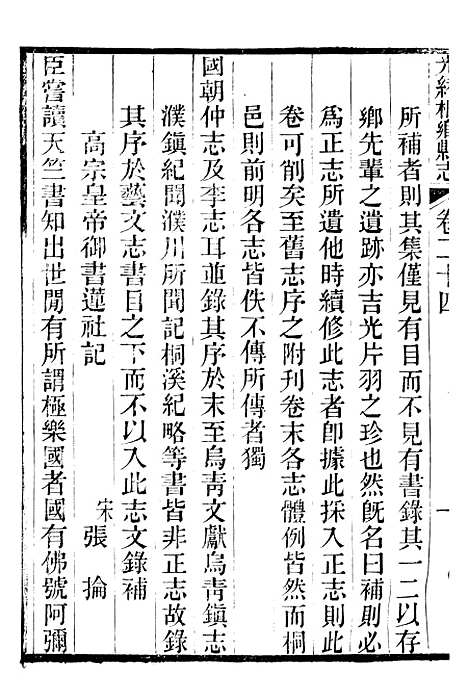 光緒桐鄉縣志 卷二十四 一
所補者則其集僅見有目而不見有書錄其一二以存
鄉先輩之遺跡亦吉光片羽之珍也然旣名曰補則必
爲正志所遺他時續修此志者卽據此採入正志則此
卷可削矣至舊志序之附刊卷末各志體例皆然而桐
邑則前明各志皆佚不傳所傳者獨
國朝仲志及李志耳並錄其序於末至烏青文獻烏青鎭志
濮鎭紀聞濮川所聞記桐溪紀略等書皆非正志故錄
其序於藝文志書目之下而不以入此志文錄補
高宗皇帝御書蓮社記
宋張掄
臣嘗讀天竺書知出世閒有所謂極樂國者國有佛號阿彌